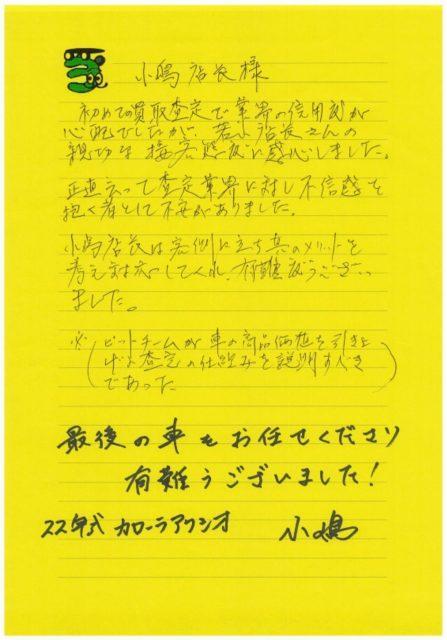 小嶋店長様
初めての買取査定で業界の信用式が
心配でしたが、若い店長さんの
親切な接客態度に感心しました。
正直言って査定業界に対し不信感を
抱く者として不安がありました。
小嶋店長は客側に立ち其のメリットを
考え対応してくれ、有難うござい
ました。
※(ピットチームが車の商品価値を引き上
げる査定の仕組みを説明すべき
であった)
最後の車をお任せくださり
有難うございました!
22年式 カローラアクシオ 小嶋